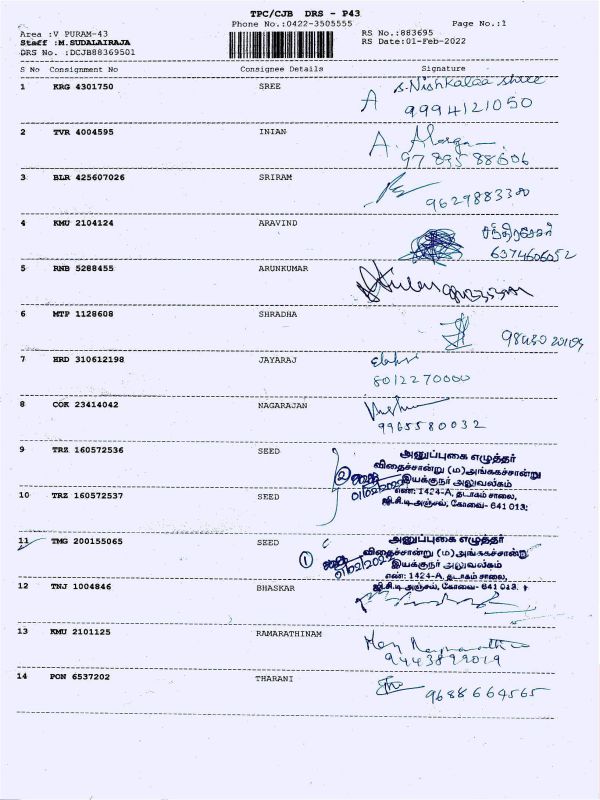 TPC/CJB DRS - P43
Phone No.:0422-3505555
Page No.:1
Area :V PURAM-43
RS No.:883695
Staff :M.SUDALAIRAJA
RS Date:01-Feb-2022
DRS No. :DCJB88369501
S No Consignment No Consignee Details Signature
1 KRG 4301750 SREE S.Nishkalaa shree
A 9994121050
2 TVR 4004595 INIAN A.
9789588606
3 BLR 425607026 SRIRAM
9629883300
4 KMU 2104124 ARAVIND சந்திரசேகர்
6374606052
5 RNB 5288455 ARUNKUMAR
6 MTP 1128608 SHRADHA
7 HRD 310612198 JAYARAJ
8012270000
8 COK 23414042 NAGARAJAN
9965580032
9 TRZ 160572536 SEED
அனுப்புகை எழுத்தர்
விதைச்சான்று (ம) அங்ககச்சான்று
② இயக்குநர் அலுவலகம்
01/02/2022 எண்: 1424-A, தடாகம் சாலை,
10 TRZ 160572537 SEED
ஜி.சி.டி.அஞ்சல், கோவை- 641 013.
11 TMG 200155065 SEED
அனுப்புகை எழுத்தர்
விதைச்சான்று (ம) அங்ககச்சான்று
① இயக்குநர் அலுவலகம்
01/02/2022 எண்: 1424-A, தடாகம் சாலை,
ஜி.சி.டி.அஞ்சல், கோவை- 641 013.
12 TNJ 1004846 BHASKAR
13 KMU 2101125 RAMARATHINAM
9443899019
14 PON 6537202 THARANI
9688664565